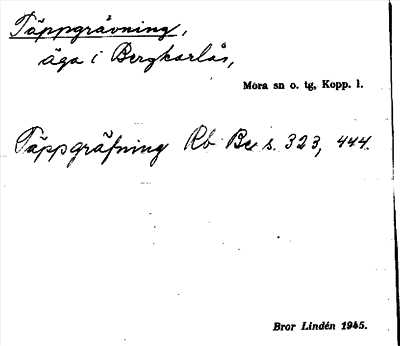 Täppgrävning,
äga i Bergkarlås,
Mora sn o. tg, Kopp. l.
Täppgräfning Rb Bc s. 323, 444.
Bror Lindén 1945.